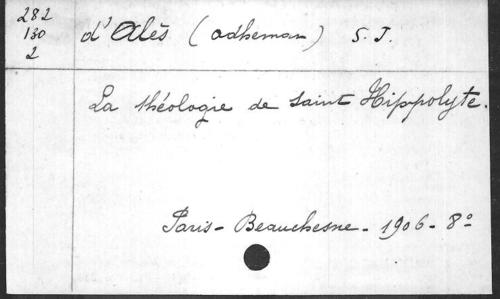 282
130
2
d'Alès (Adhemar) S. J.
La théologie de saint Hippolyte.
Paris - Beauchesne - 1906 - 8°